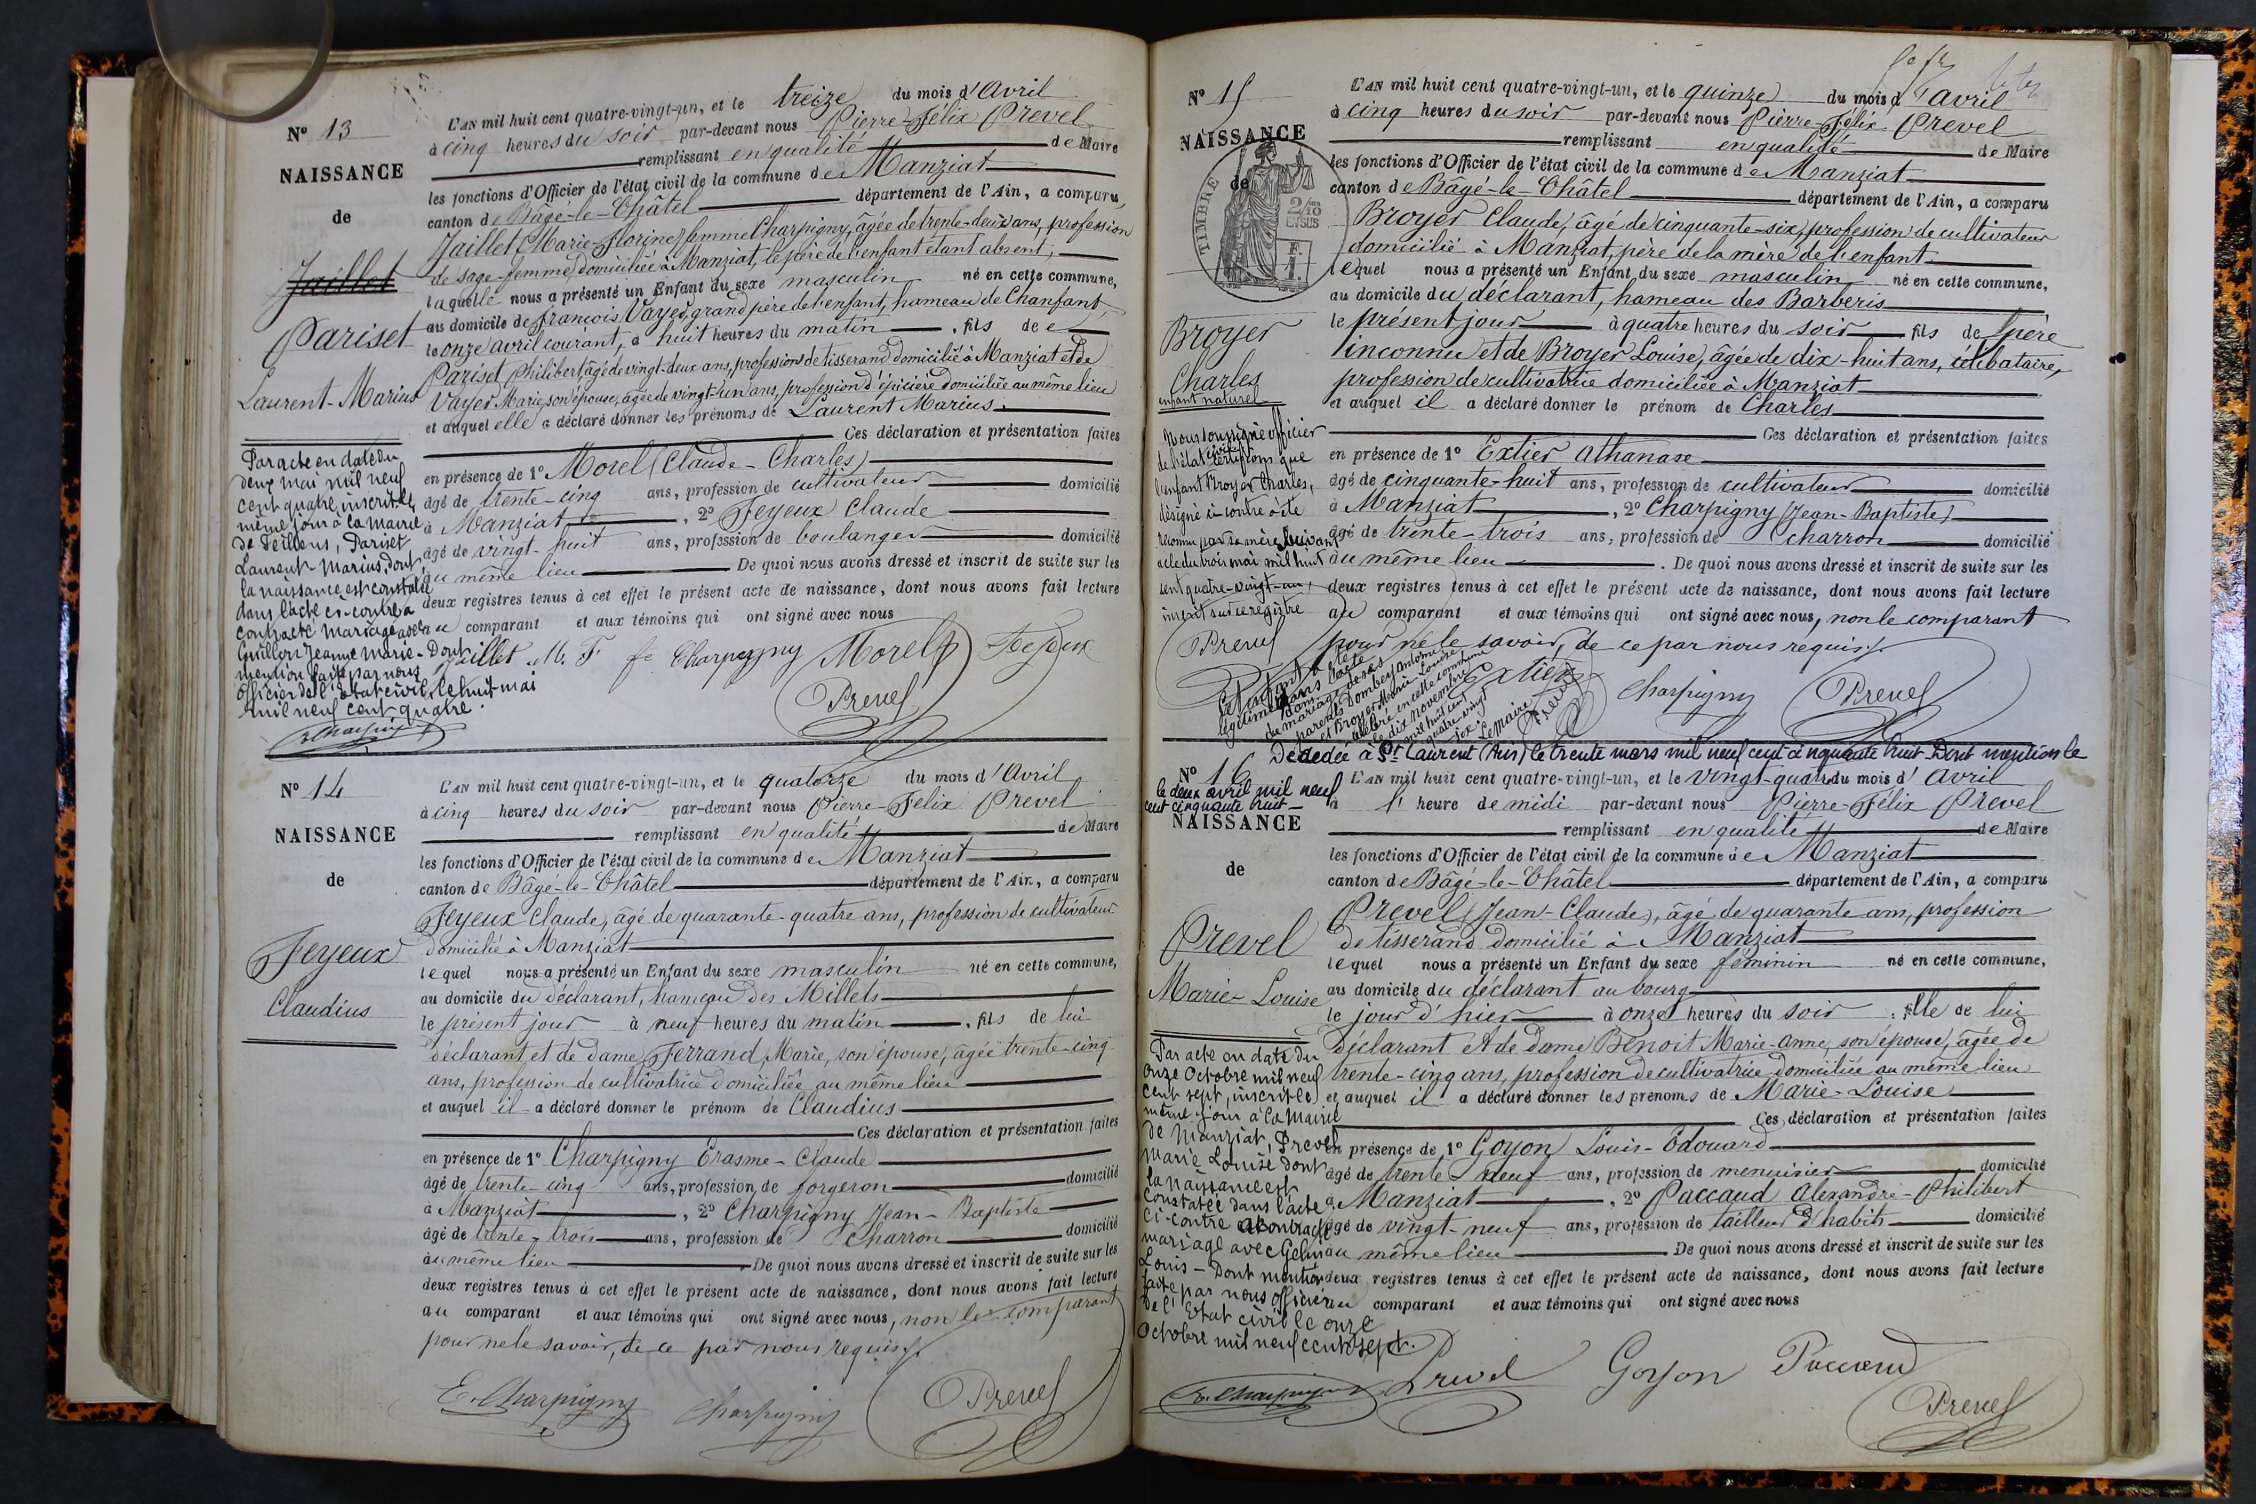 Nº 13
NAISSANCE
de
Jaillet
Pariset
Laurent-Marius
L'AN mil huit cent quatre-vingt-un, et le treize du mois d'Avril
à cinq heures du soir par-devant nous Pierre-Félix Prevel
remplissant en qualité de Maire
les fonctions d'Officier de l'état civil de la commune de Manziat
canton de Bâgé-le-Châtel département de l'Ain, a comparu
Jaillet (Marie-Florine) femme Charpigny, âgée de trente-deux ans, profession
de sage-femme, domiciliée à Manziat, le père de l'enfant étant absent,
laquelle nous a présenté un Enfant du sexe masculin né en cette commune,
au domicile de François Vayer, grand père de l'enfant, hameau de Chanfant,
le onze avril courant, à huit heures du matin, fils de
Pariset Philibert, âgé de vingt-deux ans, profession de tisserand domicilié à Manziat et de
Vayer Marie, son épouse, âgée de vingt-un ans, profession d'épicière domiciliée au même lieu
et auquel elle a déclaré donner les prénoms de Laurent Marius.
Ces déclaration et présentation faites
en présence de 1º Morel (Claude-Charles)
âgé de trente-cinq ans, profession de cultivateur domicilié
à Manziat, 2º Feyeux Claude
âgé de vingt-huit ans, profession de boulanger domicilié
au même lieu De quoi nous avons dressé et inscrit de suite sur les
deux registres tenus à cet effet le présent acte de naissance, dont nous avons fait lecture
au comparant et aux témoins qui ont signé avec nous
Jaillet M. F fe Charpigny Morel Feyeux
Prevel
Par acte en date du
deux mai mil neuf
cent quatre, inscrit le
même jour à la mairie
de Feillens, Pariset
Laurent-Marius, dont
la naissance est constatée
dans l'acte ci-contre a
contracté mariage avec
Guillon Jeanne Marie - Dont
mention faite par nous
officier de l'état civil, le huit mai
mil neuf cent quatre.
E. Charpigny
Nº 14
NAISSANCE
de
Feyeux
Claudius
L'AN mil huit cent quatre-vingt-un, et le quatorze du mois d'Avril
à cinq heures du soir par-devant nous Pierre-Félix Prevel
remplissant en qualité de Maire
les fonctions d'Officier de l'état civil de la commune de Manziat
canton de Bâgé-le-Châtel département de l'Ain, a comparu
Feyeux Claude, âgé de quarante-quatre ans, profession de cultivateur
domicilié à Manziat
lequel nous a présenté un Enfant du sexe masculin né en cette commune,
au domicile du déclarant, hameau des Millets
le présent jour à neuf heures du matin, fils de lui
déclarant et de dame Ferrand Marie, son épouse, âgée trente-cinq
ans, profession de cultivatrice domiciliée au même lieu
et auquel il a déclaré donner le prénom de Claudius
Ces déclaration et présentation faites
en présence de 1º Charpigny Erasme-Claude
âgé de trente-cinq ans, profession de forgeron domicilié
à Manziat, 2º Charpigny Jean-Baptiste
âgé de trente-trois ans, profession de charron domicilié
au même lieu De quoi nous avons dressé et inscrit de suite sur les
deux registres tenus à cet effet le présent acte de naissance, dont nous avons fait lecture
au comparant et aux témoins qui ont signé avec nous, non le comparant
pour ne le savoir, de ce par nous requis.
E. Charpigny Charpigny Prevel
Nº 15
NAISSANCE
de
TIMBRE
2/10
EN SUS
F.
1.
Broyer
Charles
enfant naturel
L'AN mil huit cent quatre-vingt-un, et le quinze du mois d'avril
à cinq heures du soir par-devant nous Pierre-Félix Prevel
remplissant en qualité de Maire
les fonctions d'Officier de l'état civil de la commune de Manziat
canton de Bâgé-le-Châtel département de l'Ain, a comparu
Broyer Claude, âgé de cinquante-six, profession de cultivateur
domicilié à Manziat, père de la mère de l'enfant
lequel nous a présenté un Enfant du sexe masculin né en cette commune,
au domicile du déclarant, hameau des Barberis
le présent jour à quatre heures du soir fils de père
inconnu et de Broyer Louise, âgée de dix-huit ans, célibataire,
profession de cultivatrice domiciliée à Manziat
et auquel il a déclaré donner le prénom de Charles
Ces déclaration et présentation faites
en présence de 1º Extier Athanase
âgé de cinquante-huit ans, profession de cultivateur domicilié
à Manziat, 2º Charpigny (Jean-Baptiste)
âgé de trente-trois ans, profession de charron domicilié
au même lieu. De quoi nous avons dressé et inscrit de suite sur les
deux registres tenus à cet effet le présent acte de naissance, dont nous avons fait lecture
au comparant et aux témoins qui ont signé avec nous, non le comparant
pour ne le savoir, de ce par nous requis.
Extier Charpigny Prevel
Nous soussigné officier
de l'état civil certifions que
l'enfant Broyer Charles,
désigné ci-contre a été
reconnu par sa mère suivant
acte du trois mai mil huit
cent quatre-vingt-un,
inscrit sur ce registre
Prevel
Cet enfant a été
légitimé dans l'acte
du mariage de ses
parents Dombey Antoine
et Broyer Marie-Louise
célébré en cette commune
le dix novembre
mil huit cent
quatre-vingt
six. Le Maire
Prevel
Décédée à St Laurent (Ain) le trente mars mil neuf cent cinquante huit - Dont mention le
le deux avril mil neuf
cent cinquante huit -
Nº 16
NAISSANCE
de
Prevel
Marie-Louise
L'AN mil huit cent quatre-vingt-un, et le vingt-quatre du mois d'Avril
à l'heure de midi par-devant nous Pierre-Félix Prevel
remplissant en qualité de Maire
les fonctions d'Officier de l'état civil de la commune de Manziat
canton de Bâgé-le-Châtel département de l'Ain, a comparu
Prevel (Jean-Claude), âgé de quarante ans, profession
de tisserand domicilié à Manziat
lequel nous a présenté un Enfant du sexe féminin né en cette commune,
au domicile du déclarant au bourg
le jour d'hier à onze heures du soir, fille de lui
déclarant et de dame Benoit Marie-Anne, son épouse, âgée de
trente-cinq ans, profession de cultivatrice domiciliée au même lieu
et auquel il a déclaré donner les prénoms de Marie-Louise
Ces déclaration et présentation faites
en présence de 1º Goyon Louis-Edouard
âgé de trente neuf ans, profession de menuisier domicilié
à Manziat, 2º Paccaud Alexandre-Philibert
âgé de vingt-neuf ans, profession de tailleur d'habits domicilié
au même lieu De quoi nous avons dressé et inscrit de suite sur les
deux registres tenus à cet effet le présent acte de naissance, dont nous avons fait lecture
au comparant et aux témoins qui ont signé avec nous
Prevel Goyon Paccaud
Prevel
Par acte en date du
onze Octobre mil neuf
cent sept, inscrit le
même jour à la Mairie
de Manziat, Prevel
Marie Louise dont
la naissance est
constatée dans l'acte
ci-contre a contracté
mariage avec Gelin
Louis - Dont mention
faite par nous officier
de l'Etat civil le onze
Octobre mil neuf cent sept.
E. Charpigny